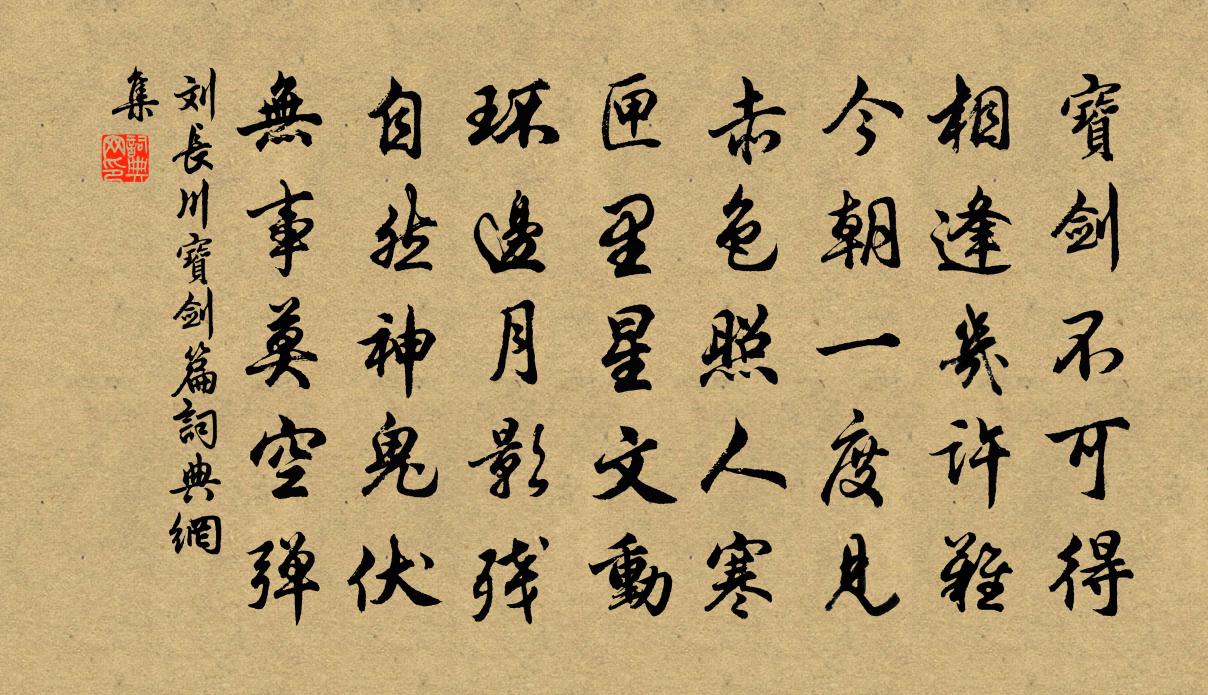 寶劍不可得
相逢幾許難
今朝一度見
赤色照人寒
匣里星文動
环邊月影残
自然神鬼伏
無事莫空弹
刘長川寶劍篇詞典網
集
詞典
网印